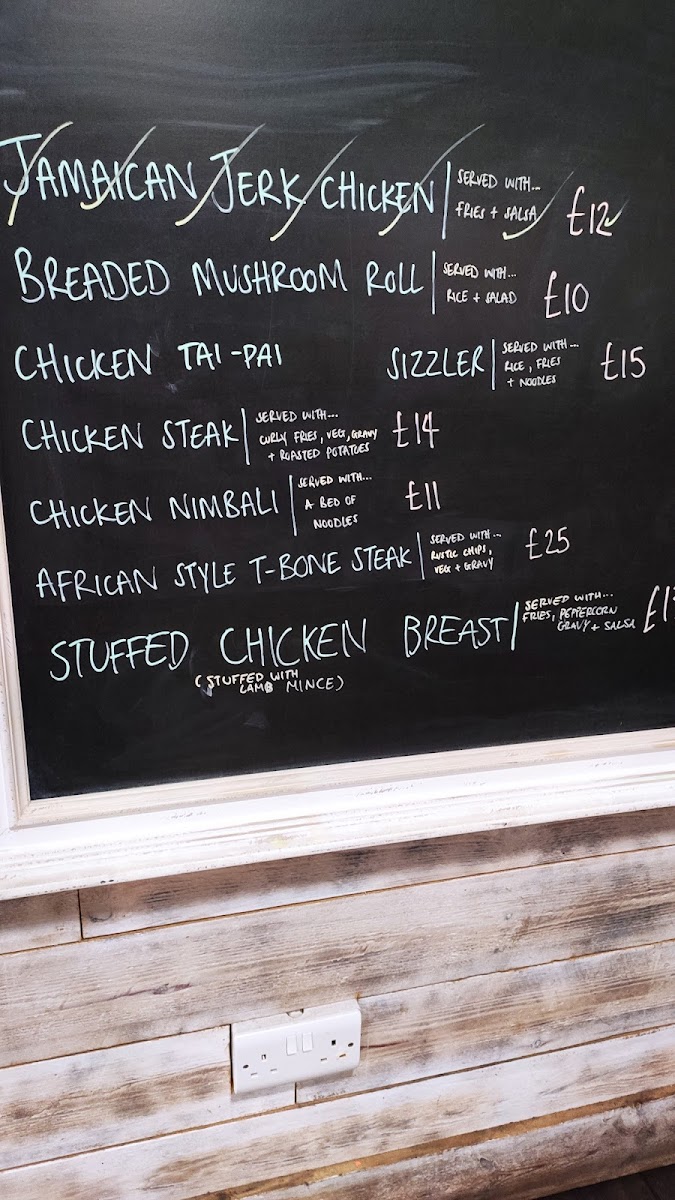 JAMAICAN JERK CHICKEN
SERVED WITH...
FRIES + SALSA
£12
BREADED MUSHROOM ROLL
SERVED WITH...
RICE + SALAD
£10
CHICKEN TAI-PAI SIZZLER
SERVED WITH...
RICE, FRIES
+ NOODLES
£15
CHICKEN STEAK
SERVED WITH...
CURLY FRIES, VEG, GRAVY
+ ROASTED POTATOES
£14
CHICKEN NIMBALI
SERVED WITH...
A BED OF
NOODLES
£11
AFRICAN STYLE T-BONE STEAK
SERVED WITH...
RUSTIC CHIPS,
VEG + GRAVY
£25
STUFFED CHICKEN BREAST
(STUFFED WITH
LAMB MINCE)
SERVED WITH...
FRIES, PEPPERCORN
GRAVY + SALSA